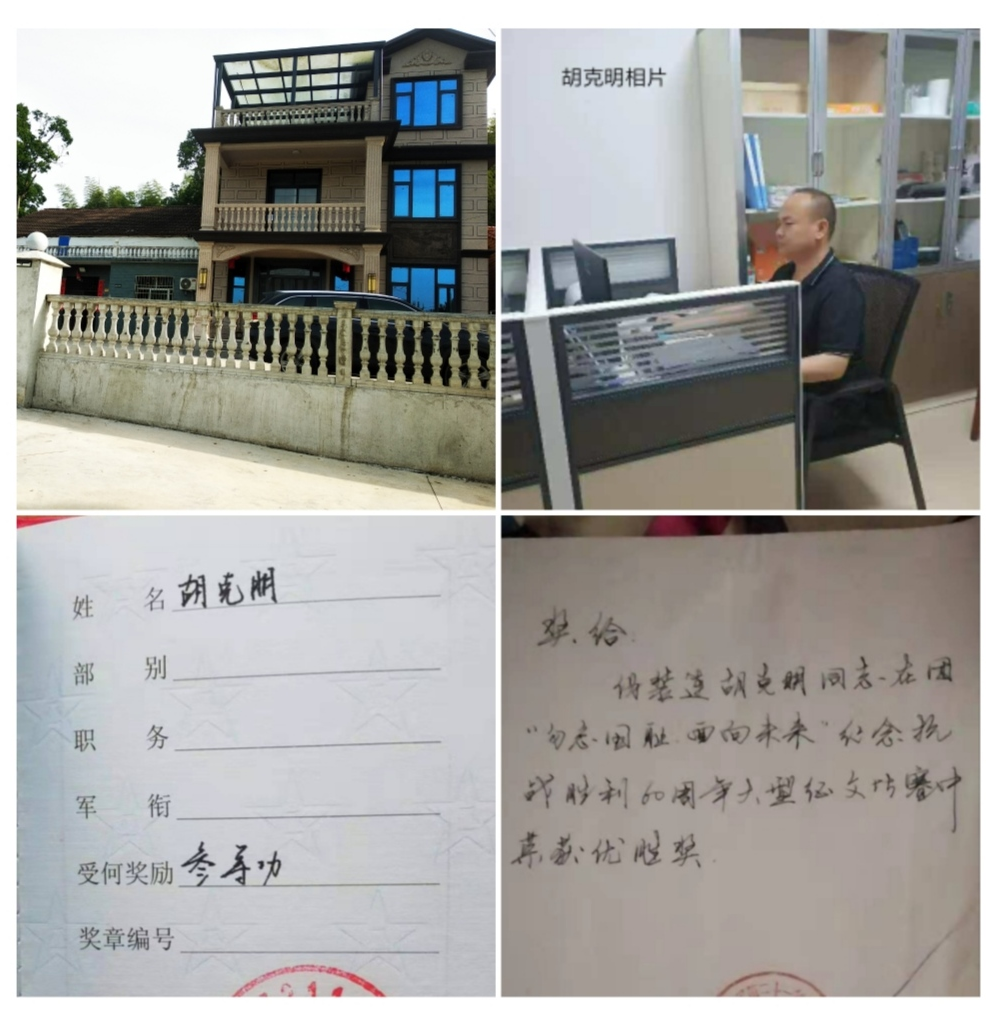 胡克明相片
姓 名 胡克明
部 别
职 务
军 衔
受何奖励 叁等功
奖章编号
奖给:
伪装连胡克明同志在团
“勿忘国耻.面向未来”纪念抗
战胜利60周年大型征文比赛中
荣获优胜奖.